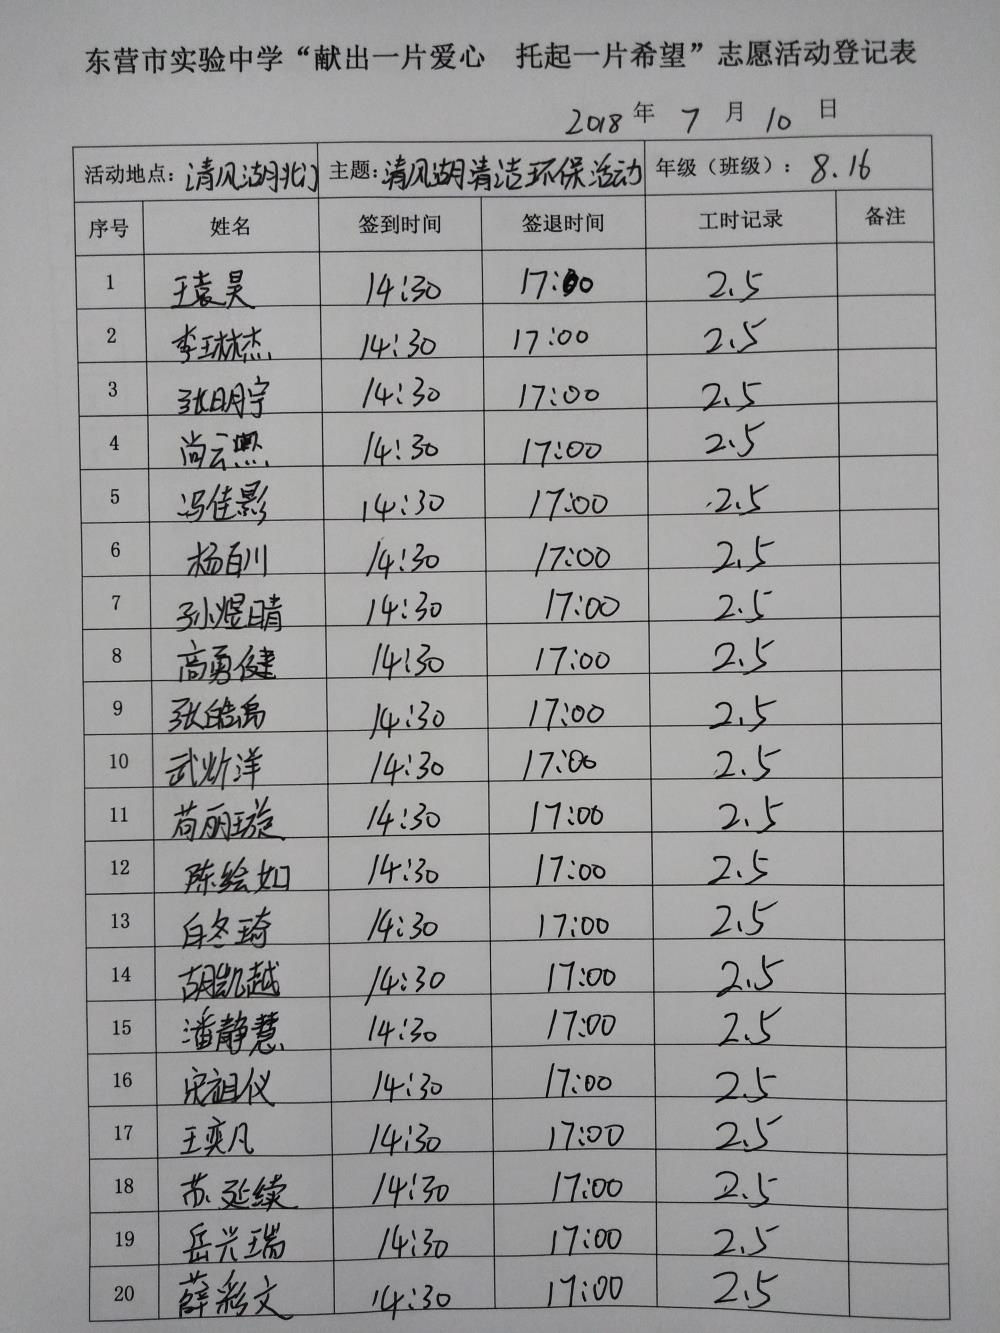 东营市实验中学“献出一片爱心 托起一片希望”志愿活动登记表
2018 年 7 月 10 日
活动地点：清风湖北门 主题：清风湖清洁环保活动 年级（班级）：8.16
序号 姓名 签到时间 签退时间 工时记录 备注
1 王袁昊 14:30 17:00 2.5
2 李琳杰 14:30 17:00 2.5
3 张明宁 14:30 17:00 2.5
4 尚云 14:30 17:00 2.5
5 冯佳影 14:30 17:00 2.5
6 杨百川 14:30 17:00 2.5
7 孙煜晴 14:30 17:00 2.5
8 高勇健 14:30 17:00 2.5
9 张皓禹 14:30 17:00 2.5
10 武炘洋 14:30 17:00 2.5
11 苟丽璇 14:30 17:00 2.5
12 陈绘如 14:30 17:00 2.5
13 白冬琦 14:30 17:00 2.5
14 胡凯越 14:30 17:00 2.5
15 潘静慧 14:30 17:00 2.5
16 宋祖仪 14:30 17:00 2.5
17 王奕凡 14:30 17:00 2.5
18 苏延续 14:30 17:00 2.5
19 岳兴瑞 14:30 17:00 2.5
20 薛彩文 14:30 17:00 2.5